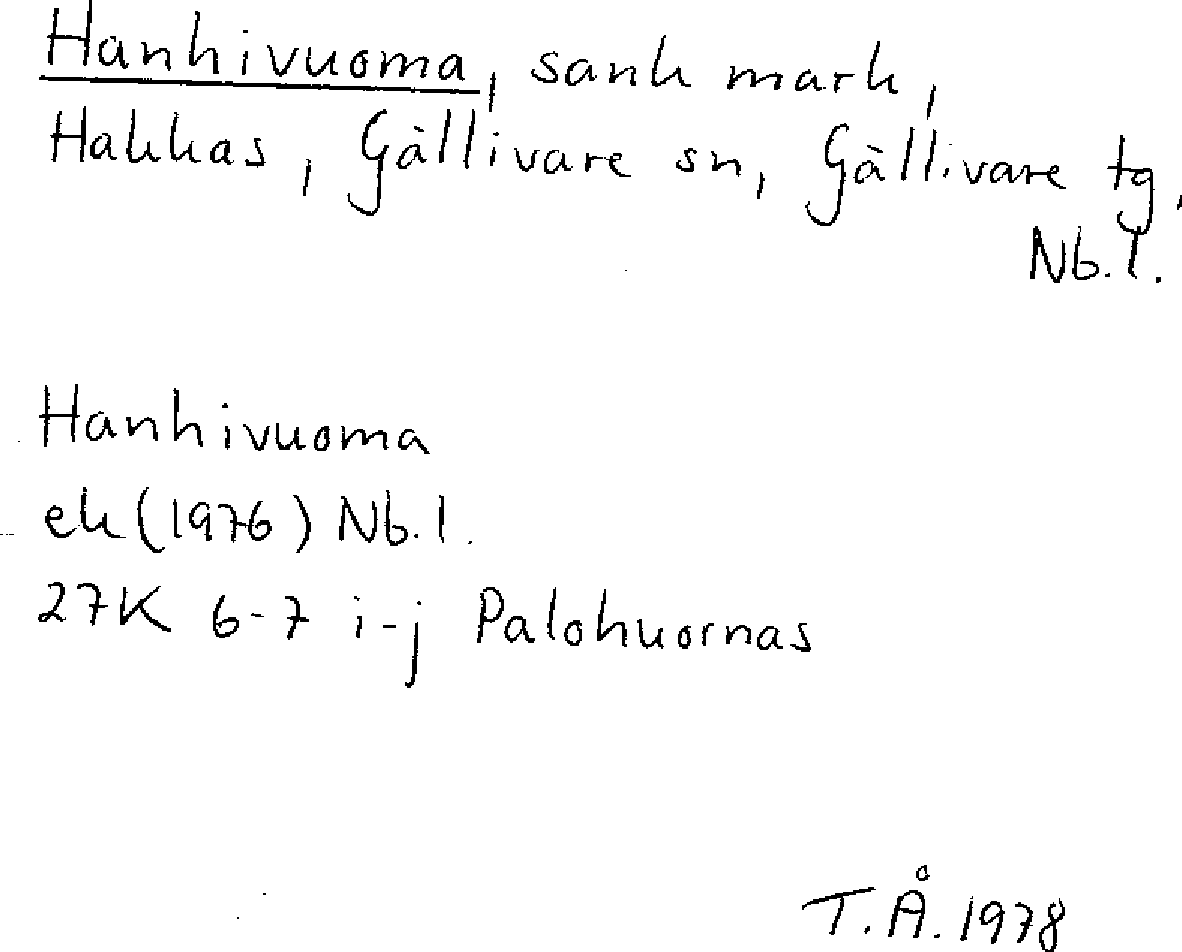 Hanhivuoma, sank mark,
Hakkas, Gällivare sn, Gällivare tg,
Nb. l.
Hanhivuoma
ek (1976) Nb. l.
27K 6-7 i-j Palohuornas
T.Å. 1978